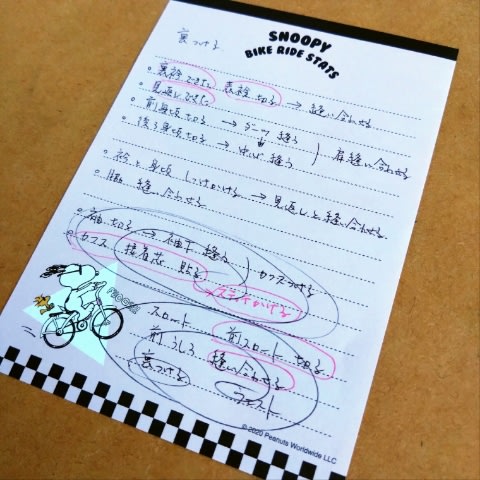 裏つける
SNOOPY
BIKE RIDE STATS
裏衿できた 表衿切る → 縫い合わせる
見返しできた
前身頃切る → ダーツ縫う
後ろ身頃切る → 中心縫う 肩縫い合わせる
衿と身頃 しつけかける → 見返しと縫い合わせる
脇縫い合わせる
袖切る → 袖下縫う
カフス 接着芯貼る カフスつける
ステッチかける
スカート 前スカート切る
前うしろ 縫い合わせる
裏つける ウエスト
© 2020 Peanuts Worldwide LLC